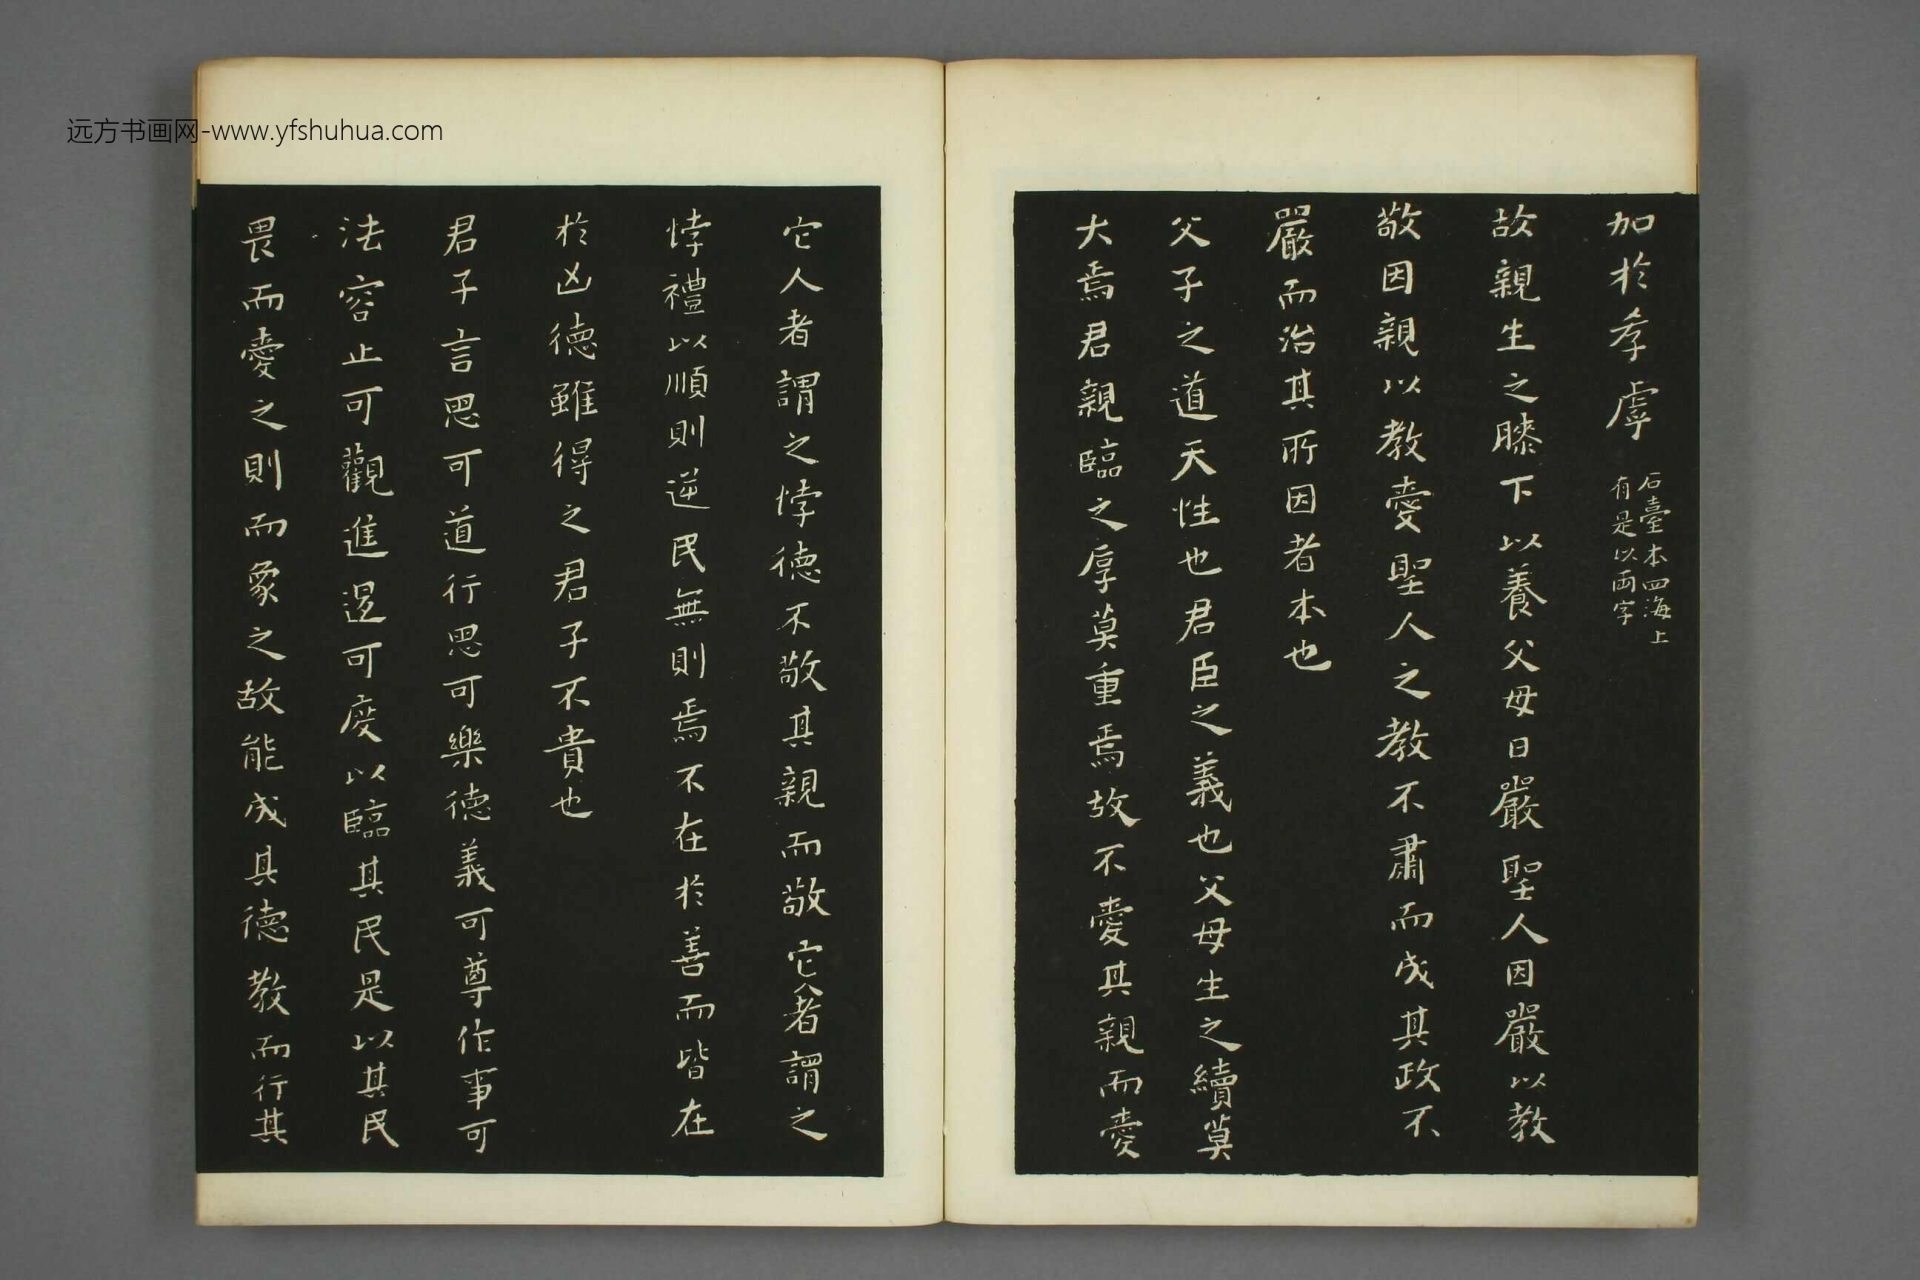 远方书画网-www.yfshuhua.com
加於孝虖
石臺本四海上
有是以兩字
故親生之膝下以養父母日嚴聖人因嚴以教
敬因親以教愛聖人之教不肅而成其政不
嚴而治其所因者本也
父子之道天性也君臣之義也父母生之續莫
大焉君親臨之厚莫重焉故不愛其親而愛
它人者謂之悖德不敬其親而敬它人者謂之
悖禮以順則逆民無則焉不在於善而皆在
於凶德雖得之君子不貴也
君子言思可道行思可樂德義可尊作事可
法容止可觀進退可度以臨其民是以其民
畏而愛之則而象之故能成其德教而行其